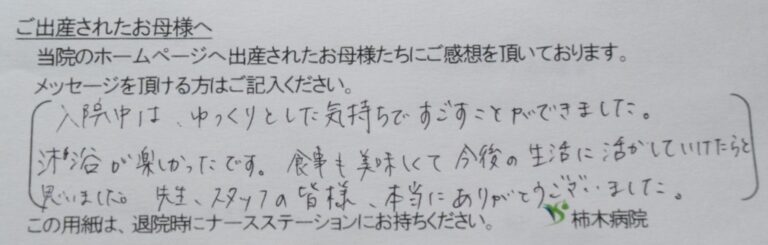 ご出産されたお母様へ
当院のホームページへ出産されたお母様たちにご感想を頂いております。
メッセージを頂ける方はご記入ください。
入院中は、ゆっくりとした気持ちですごすことができました。
沐浴が楽しかったです。食事も美味しくて今後の生活に活かしていけたらと
思いました。先生、スタッフの皆様、本当にありがとうございました。
この用紙は、退院時にナースステーションにお持ちください。 柿木病院